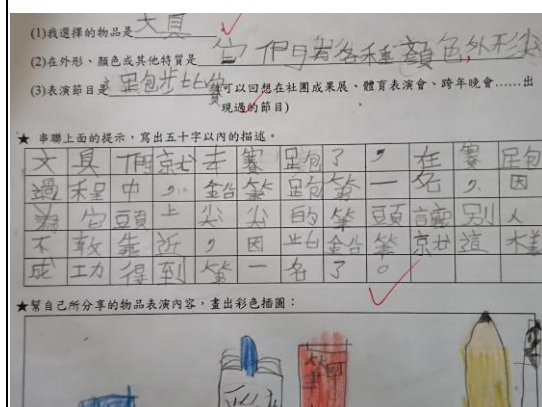 (1)我選擇的物品是文具
(2)在外形、顏色或其他特質是它們有各種顏色,外形尖
(3)表演節目是足包步比賽(可以回想在社團成果展、體育表演會、跨年晚會……出
現過的節目)
★ 串聯上面的提示,寫出五十字以內的描述。
文具們就去賽跑了,在賽跑
過程中,鉛筆跑第一名,因
為它頭上尖尖的筆頭讓別人
不敢靠近,因此鉛筆就這樣
成功得到第一名了。
★幫自己所分享的物品表演內容,畫出彩色插圖: